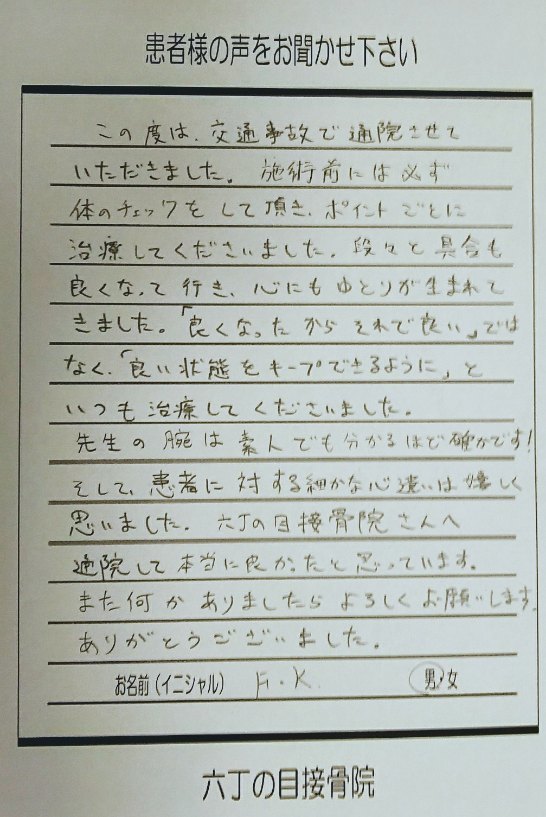 患者様の声をお聞かせ下さい
この度は、交通事故で通院させて
いただきました。施術前には必ず
体のチェックをして頂き、ポイントごとに
治療してくださいました。段々と具合も
良くなって行き、心にもゆとりが生まれて
きました。「良くなったからそれで良い」では
なく、「良い状態をキープできるように」と
いつも治療してくださいました。
先生の腕は素人でも分かるほど確かです!
そして、患者に対する細かな心遣いは嬉しく
思いました。六丁の目接骨院さんへ
通院して本当に良かったと思っています。
また何かありましたらよろしくお願いします。
ありがとうございました。
お名前(イニシャル) F・K. 男・女
六丁の目接骨院